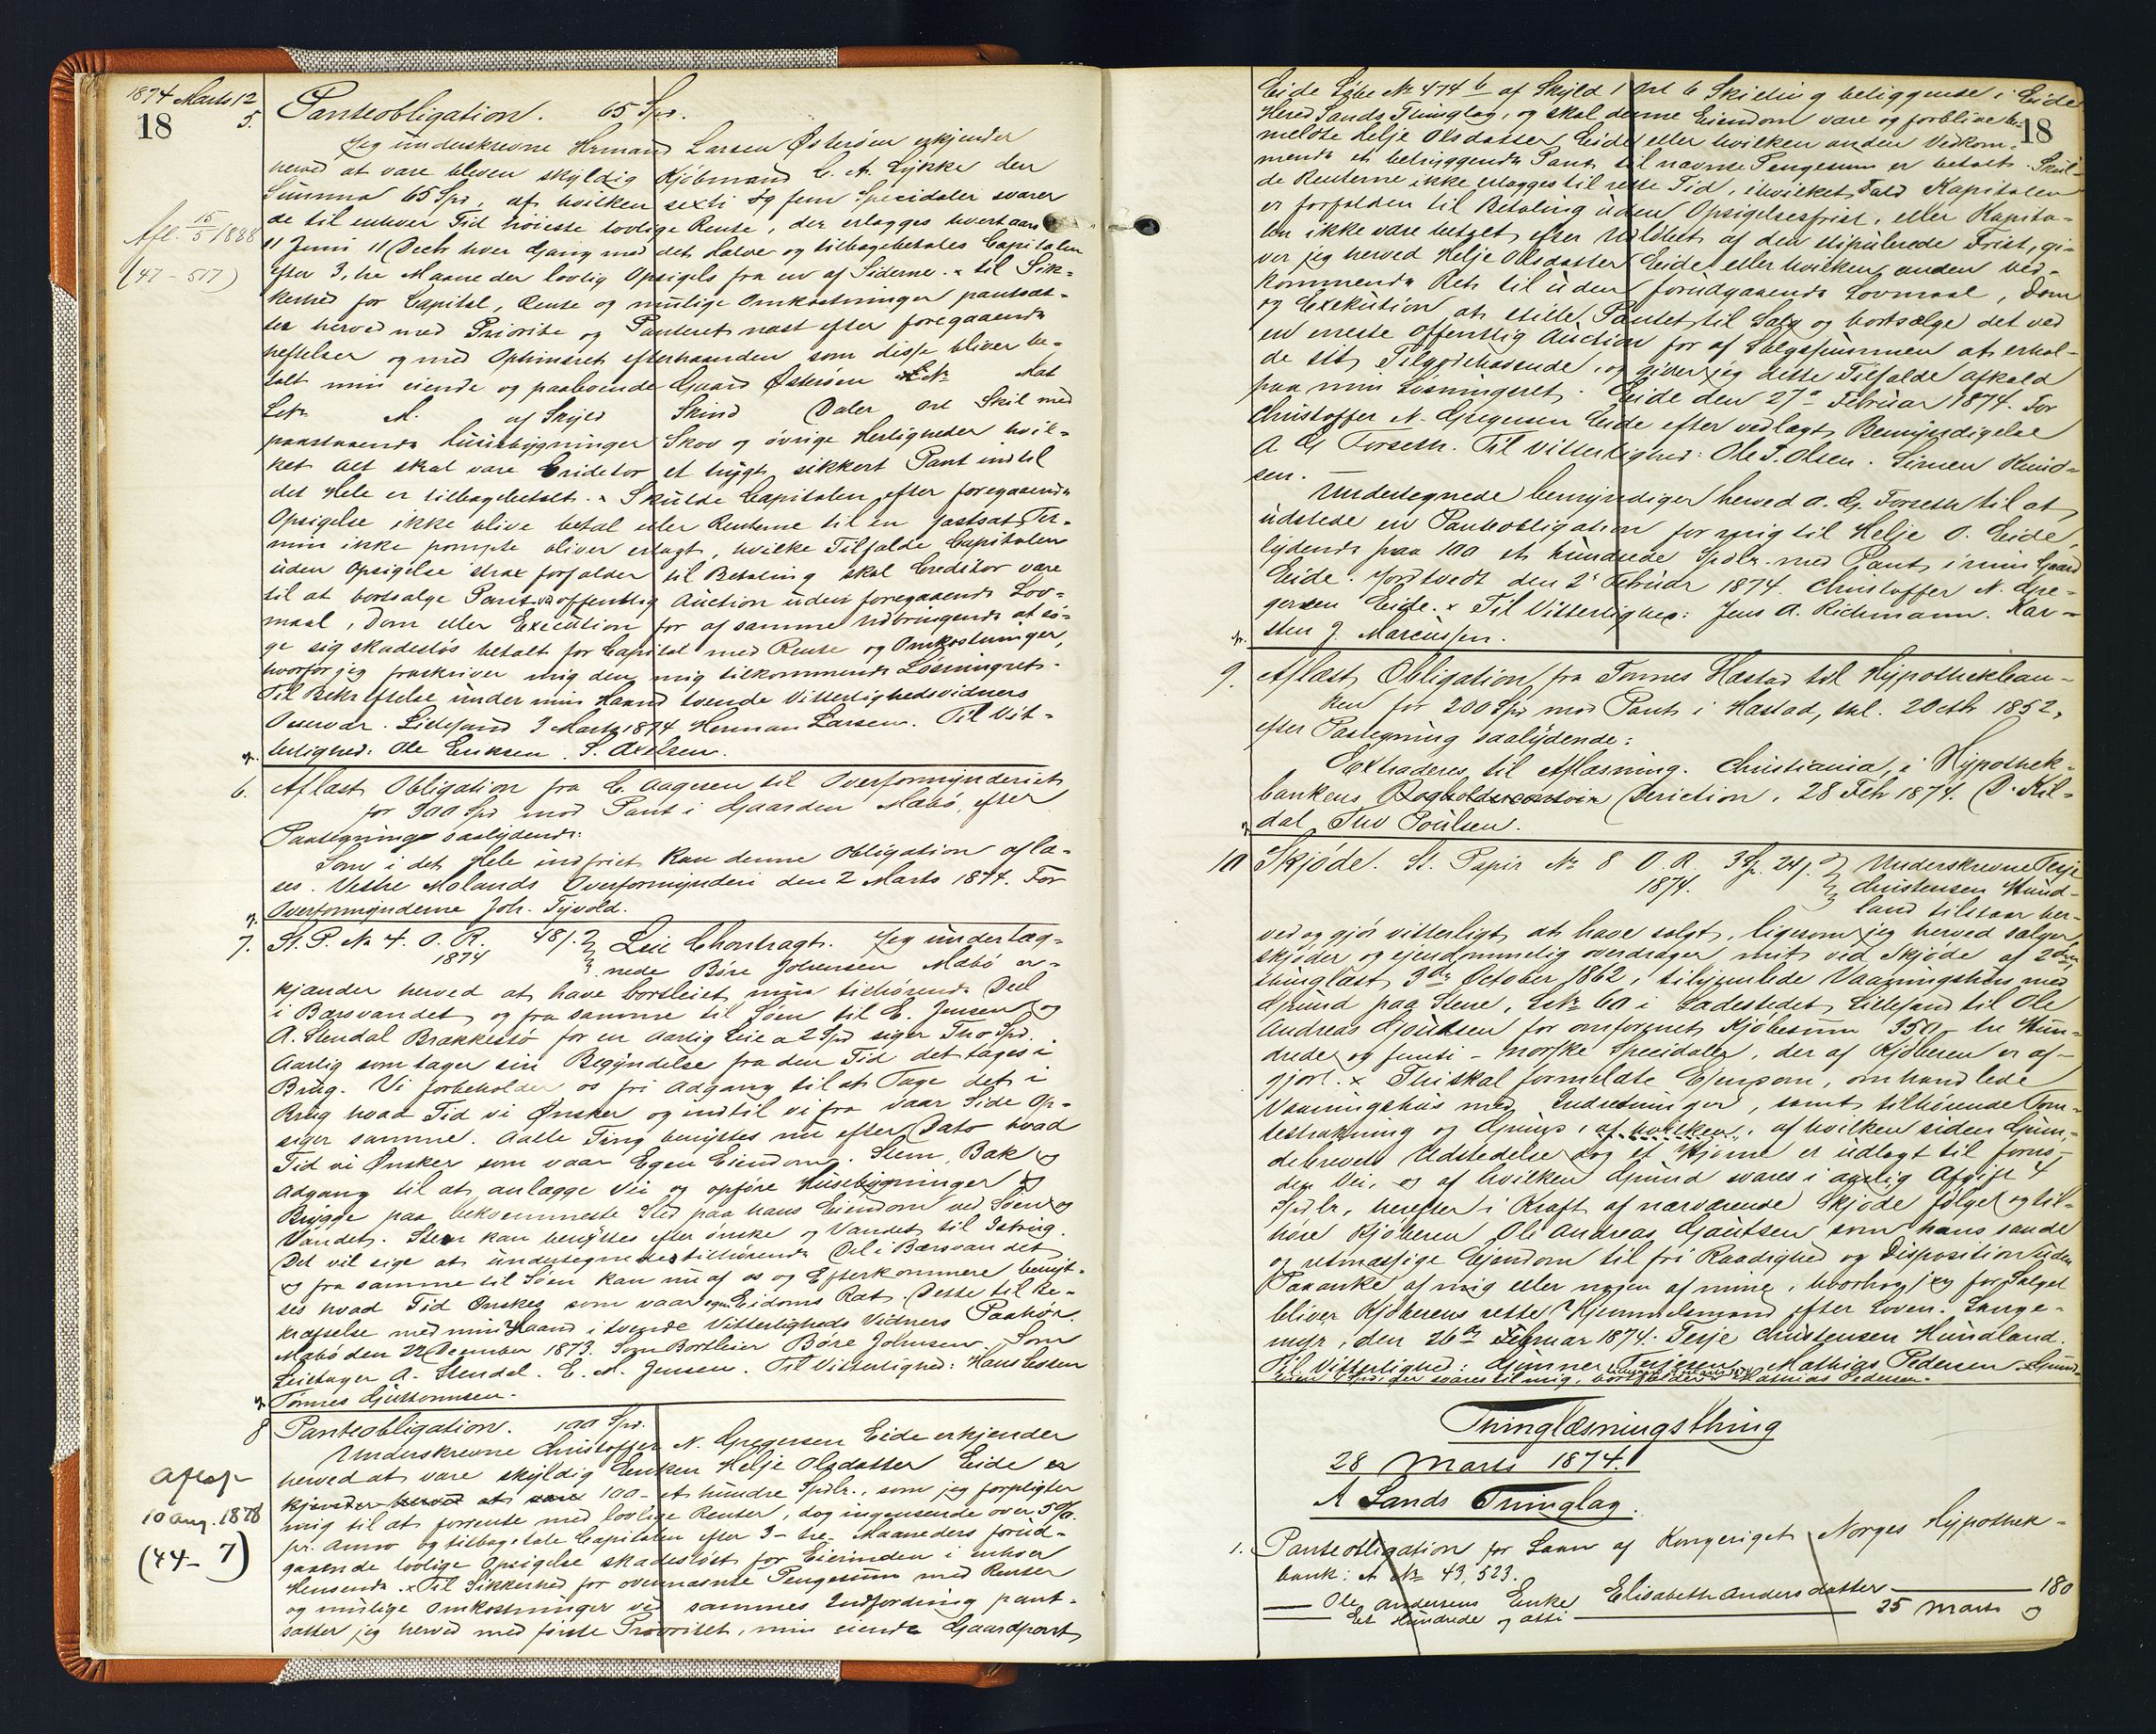 1874 Marts 12
18
5.
Panteobligation. 65 Spd.
Jeg underskrevne Herman Larsen Østerøen erkjender
herved at være bleven skyldig Kjøbmand C. A. Lykke den
Summa 65 Spd, af hvilken sexti og fem Speciedaler svarer
de til enhver Tid höieste lovlige Rente, der erlægges hvert aars
11 Juni 11 Decb hver Gang med det Halve og tilbagebetales Capitalen
efter 3, tre Maaneder lovlig Opsigels fra en af Siderne. × til Sik-
kerhed for Capital, Rente og mulige Omkostninger pantsæt-
ter herved med Priorite og Panteret næst efter foregaaende
heftelser og med Opkinsret efterhaanden som disse bliver be-
talt min eiende og paaboende Gaard Østerøen No Mat
Lb No af Skyld Skind Daler Ort Skil med
paastaaende Huusebygninger Skov og övrige Herligheder hvil-
ket alt skal være Creditor et trygt, sikkert Pant indtil
det Hele er tilbagebetalt. × Skulde Capitalen efter foregaaende
Opsigelse ikke blive betal eller Renterne til en fastsat Ter-
min ikke prompte bliver erlagt, hvilke Tilfælde Capitalen
uden Opsigelse strax forfalder til Betaling skal Creditor være
til at bortsælge Pantet ved offentlig Auction uden foregaaende Lov-
maal, Dom eller Execution for af samme Udbringende at sö-
ge sig skadeslös betalt for Capital med Rente og Omkostninger,
hvorfor jeg fraskriver mig den mig tilkommende Løsningret.
Til Bekræftelse under min Haand tvende Vitterlighedsvidners
Overvær. Lillesand 3 Marts 1874 Herman Larsen. Til Vit-
terlighed: Ole Eriksen. S. Axelsen.
Afl. 15/5 1888
(47-517)
6. Aflæst Obligation fra C. Aagesen til Overformynderiet
for 300 Spd mod Pant i Gaarden Mæbö, efter
Paategning saalydende:
Som i det Hele indfriet kan denne Obligation aflæ-
ses. Vestre Molands Overformynderi den 2 Marts 1874. For
Overformynderne Joh. Tyvold.
7. St. P. No 4. O. R. 48 s. Leie Chontragt. Jeg undertæg-
1874
nede Böre Johnsen Mæbö er-
kjænder herved at have bortleiet min tilhørende Deel
i Bærsvandet og fra samme til Søen til E. Jensen og
A. Stendal Brækkestö for en Aarlig Leie a 2 Spd siger Tho Spd.
Aarlig som tager sin Begyndelse fra den Tid det tages i
Brug. Vi forbeholder os fri Adgang til at Tage det i
Brug hvad Tid vi Ønsker og indtil vi fra vaar Side Op-
siger samme. Aalle Ting benyttes nu efter Dato hvad
Tid vi Ønsker som vaar Egen Eiendom. Stem, Bæk og
Adgang til at anlægge Vei og opføre Husebygninger og
Brygge paa bekvemmeste Sted paa hans Eiendom ved Søen og
Vandet. Stem kan benyttes efter ønske og Vandet til Istring.
Det vil sige at undertegnedes tilhørende Del i Bærsvandet
og fra samme til Søen kan nu af os og Efterkommere benyt-
tes hvad Tid Ønskes som vaar egen Eidoms Ræt. Dette til Be-
kræftelse med min Haand i tvende Vitterligheds Vidners Paahör.
Mæbö den 22 December 1873. Som Bortleier Böre Johnsen. Som
Leietager A. Stendal. E. M. Jensen. Til Vitterlighed: Hans Lassen
Tønnes Gjuttormsen.
8 Panteobligation. 100 Spd.
Underskrevne Christoffer N. Gregersen Eide erkjender
herved at være skyldig Enken Helje Olsdatter Eide er
kjender herved at være 100 - et hundre Spdlr., som jeg forpligter
mig til at forrente med lovlige Renter, dog ingensinde over 5 %
pr. Anno og tilbagetale Capitalen efter 3 - tre Maaneders forud-
gaaende lovlige Opsigelse skadeslöst for Eierinden i enhver
Henseende. × Til Sikkerhed for ovennævnte Pengesum med Renter
og mulige Omkostninger ved sammes Indfordring pant-
sætter jeg herved med förste Prioritet, min eiende Gaardpart
Aflæst
10 Aug. 1878
(44-7)
Eide Löbe No 474 b af Skyld 1 Ort 6 Skilling beliggende i Eide
Hered Sands Thinglag, og skal denne Eiendom være og forblive be-
18
meldte Helje Olsdatter Eide eller hvilken anden Vedkom-
mende et betryggende Pant til nævnte Pengesum er betalt. Skul-
de Renterne ikke erlægges til rette Tid, i hvilket Fald Kapitalen
er forfalden til Betaling uden Opsigelsesfrist, eller Kapita-
len ikke være betalt efter Udlöbet af den stipulerede Frist, gi-
ver jeg herved Helje Olsdatter Eide eller hvilken anden Ved-
kommende Ret til uden forudgaaende Lovmaal, Dom
og Exekution at stille Pantet til Salg og bortsælge det ved
en eneste offentlig Auction for af Salgssummen at erhol-
de sit Tilgodehavende, og giver jeg dette Tilfælde afkald
paa min Løsningsret. Eide den 27de Februar 1874. For
Christoffer N. Gregersen Eide efter vedlagt Bemyndigelse
A G Forseth. Til Vitterlighed: Ole I. Olsen. Simen Knud-
sen.
Undertegnede bemyndiger herved A. G. Forseth til at
udstede en Panteobligation for mig til Helje O. Eide,
lydende paa 100 et hundrede Spdlr. med Pant i min Gaard
Eide. Hordtvedt den 2de Februar 1874. Christoffer N. Gre-
gersen Eide. × Til Vitterlighed: Jens A. Richmann. Kar-
sten J. Marcussen.
9. Aflæst Obligation fra Tønnes Hæstad til Hypothekban-
ken for 200 Spd mod Pant i Hæstad, thl. 20 Oct 1852,
efter Paategning saalydende:
Extraderes til Aflæsning. Christiania, i Hypothek-
bankens Direction, 28 Feb 1874. D. Kil-
dal Poulsen.
10 Skjöde. St. Papir No 8 O. R. 3 Sp. 24 s. Underskrevne Terje
1874. Christensen Hund-
land tilstaar her-
ved og gjör vitterligt at have solgt, ligesom jeg herved sælger
skjöder og ejendommelig overdrager mit ved Skjöde af 2den
thinglæst 3die October 1862, tilhjemlede Vaaningshus med
Grund paa Stene, LNo 60 i Ladestedet Lillesand til Ole
Andreas Gjøutsen for omforenet Kjøbesum 350, tre Hun-
drede og femti - norske Speciedaler, der af Kjöberen er af-
gjort. × Thi skal formeldte Ejendom, omhandlede
Vaaningshus med Indretninger, samt tilhørende Tom-
testrækning og Grund, af hvilken, af hvilken siden Grun-
debrevets Udstedelse dog et Hjørne er udlagt til forns-
den Vei, og af hvilken Grund svares i aarlig Afgift 4
Spdlr, herefter i Kraft af nærværende Skjöde følge og til-
höre Kjöberen Ole Andreas Gautsen som hans sande
og retmæssige Ejendom til fri Raadighed og Disposition uden
Paaanke af mig eller nogen af mine, hvorhos jeg for Salget
bliver Kjöberens rette Hjemmelsmand efter Loven. Lange-
myr, den 26de Februar 1874. Terje Christensen Hundland.
Til Vitterlighed: Gunner Terjesen. Mathias Pedersen. Grund-
Spd, der svares til mig, bortfalder. Mathias Pedersen.
Thinglæsningsthing
28 Marts 1874.
A Sands Thinglag.
1. Panteobligation for Laan af Kongeriget Norges Hypothek-
bank: A No 43,523.
Ole Andersens Enke Elisabeth Andersdatter 180
Et Hundrede og otti 25 Marts og